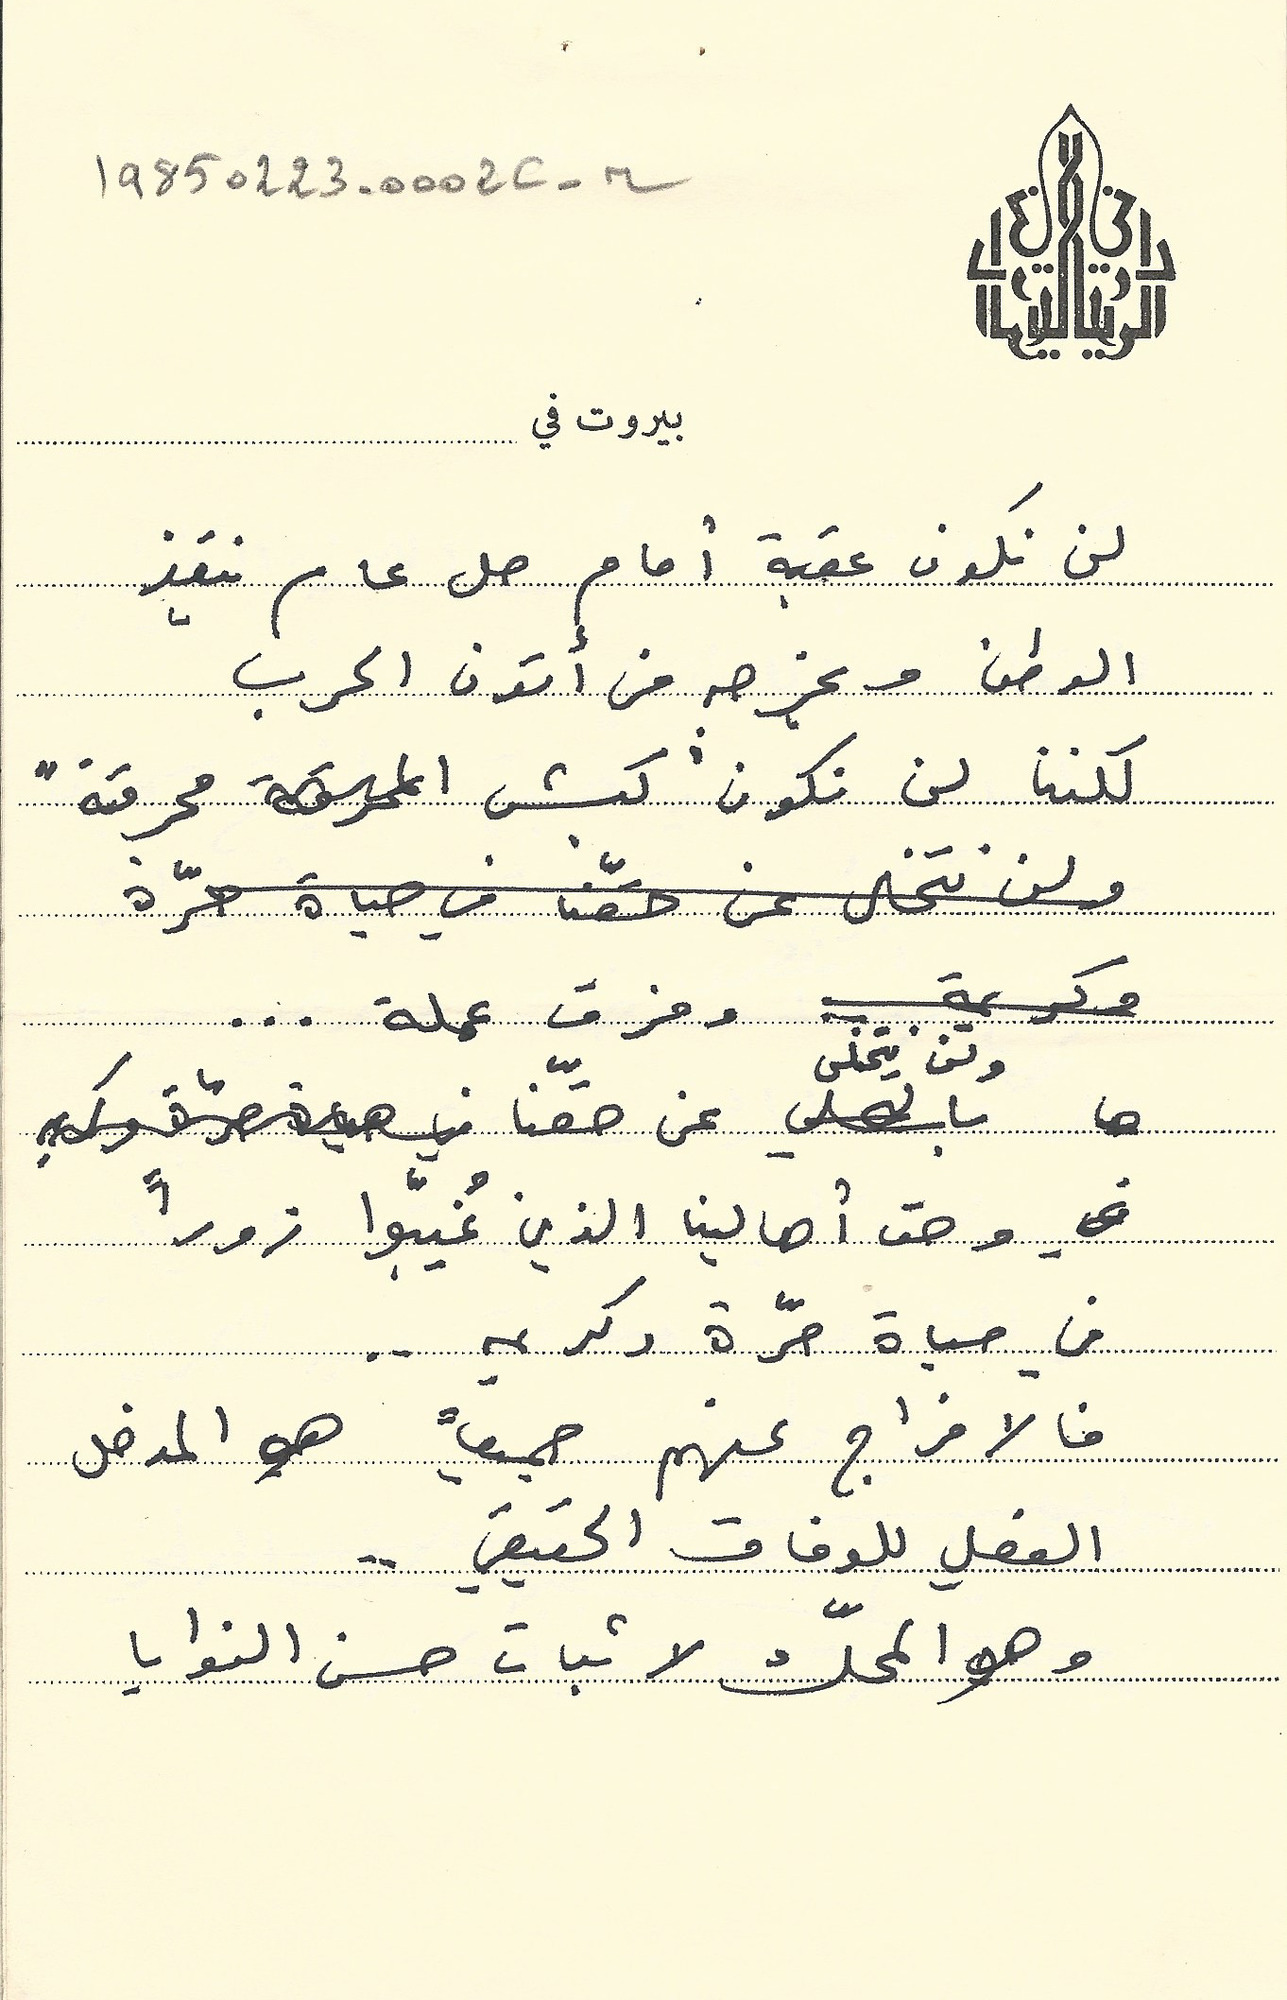 19850223-0002C-r
بيروت في
لن نكون عقبة أمام حل عام ينقذ
الوطن ويخرجه من أتون الحرب
لكننا لن نكون "كبش المحرقة محرقة"
ولن نتخلى عن حقّنا في حياة حرّة
وكريمة وفرق عملة ...
ولن نتخلى
ها عن حقّنا في حياة حرّة وكريمة
في وحق أهالينا الذين غُيبّوا زوراً
في حياة حرّة وكريمه ..
فالافراج عنهم جميعاً هو المدخل
الفعلي للوفاق الحقيقي ..
وهو المحكّ لاثبات حسن النوايا